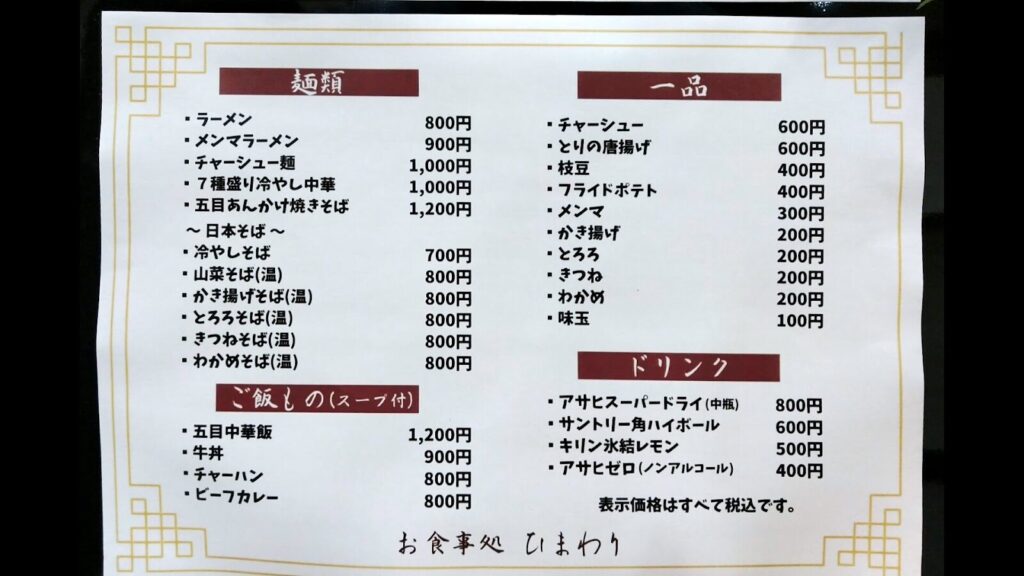 麺類
・ラーメン 800円
・メンマラーメン 900円
・チャーシュー麺 1,000円
・７種盛り冷やし中華 1,000円
・五目あんかけ焼きそば 1,200円
～日本そば～
・冷やしそば 700円
・山菜そば(温) 800円
・かき揚げそば(温) 800円
・とろろそば(温) 800円
・きつねそば(温) 800円
・わかめそば(温) 800円
ご飯もの(スープ付)
・五目中華飯 1,200円
・牛丼 900円
・チャーハン 800円
・ビーフカレー 800円
一品
・チャーシュー 600円
・とりの唐揚げ 600円
・枝豆 400円
・フライドポテト 400円
・メンマ 300円
・かき揚げ 200円
・とろろ 200円
・きつね 200円
・わかめ 200円
・味玉 100円
ドリンク
・アサヒスーパードライ(中瓶) 800円
・サントリー角ハイボール 600円
・キリン氷結レモン 500円
・アサヒゼロ(ノンアルコール) 400円
表示価格はすべて税込です。
お食事処 ひまわり